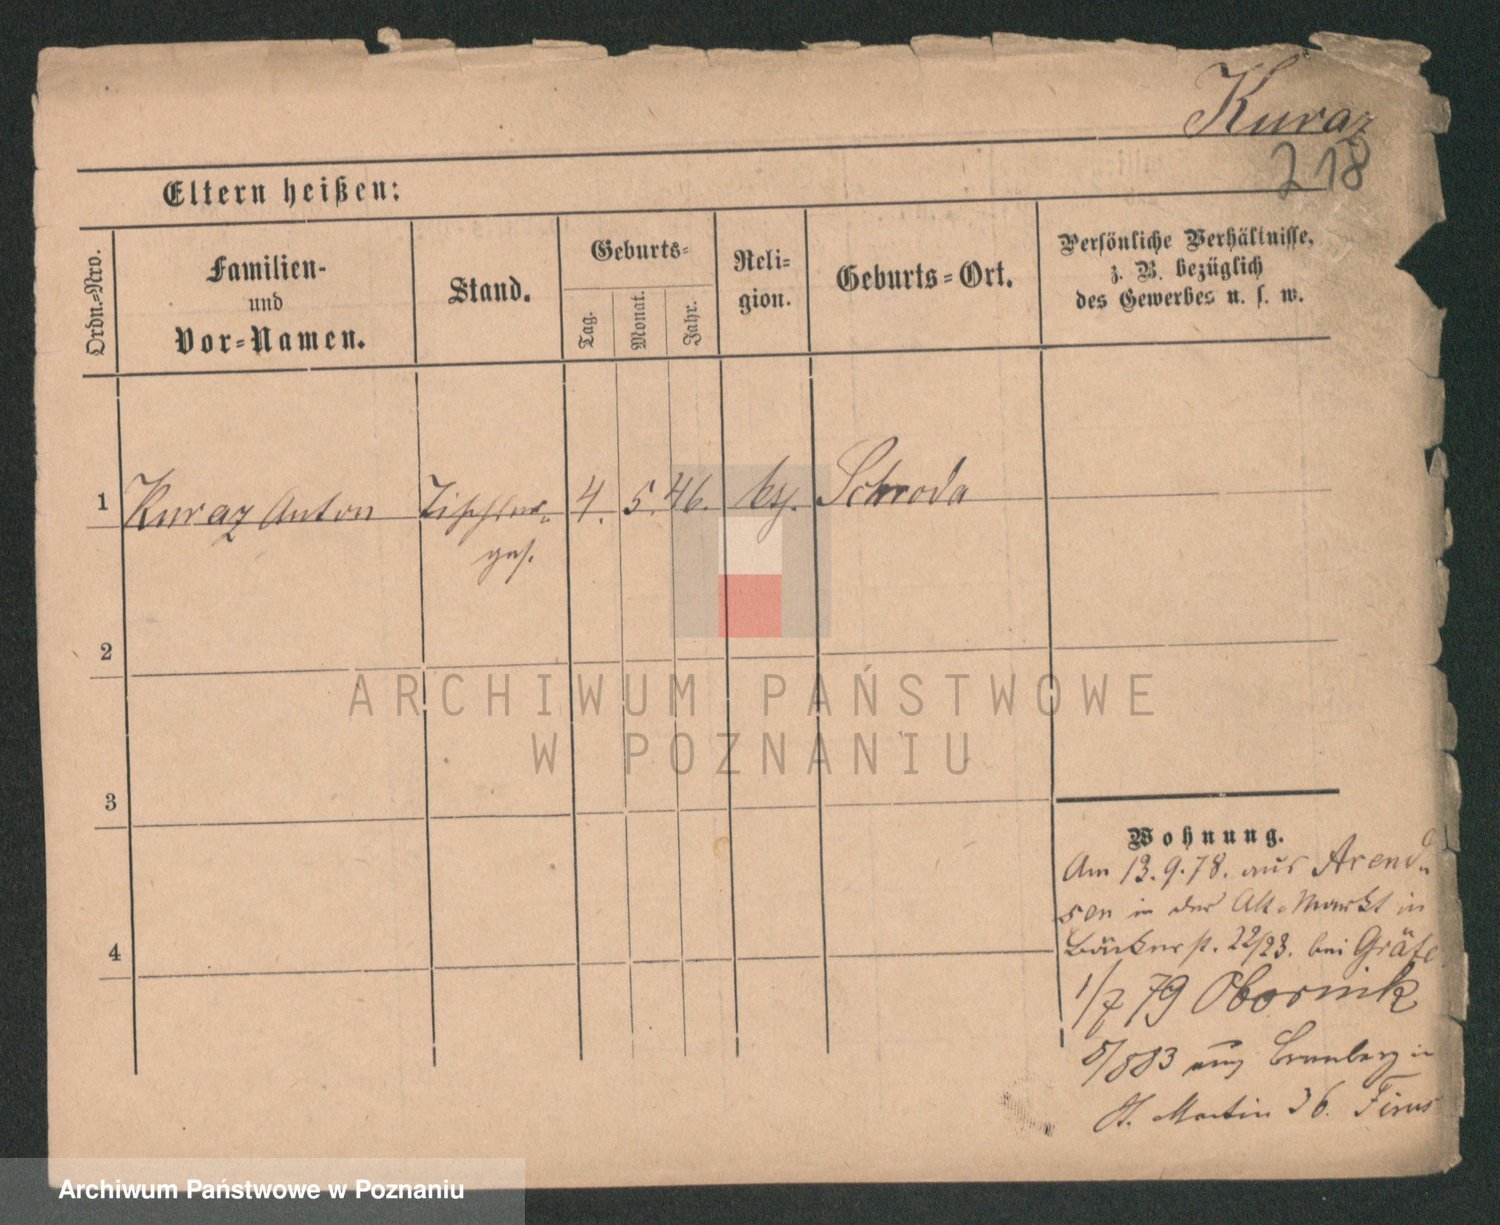 Kuraz
218
Eltern heißen:
Ordn.=Nro.
Familien-
und
Vor=Namen.
Stand.
Geburts=
Tag.
Monat.
Jahr.
Reli=
gion.
Geburts=Ort.
Persönliche Verhältnisse,
z. B. bezüglich
des Gewerbes u. s. w.
1 Kuraz Anton Tischler= 4. 5. 46. Schroda
ges.
2
3
4
ARCHIWUM PAŃSTWOWE
W POZNANIU
Wohnung.
Am 13.9.78. aus Arend=
sen in der Alt=Markt in
Bäckerst. 22/23. bei Gräfe
1/7 79 Obornik
5/8 83 aus Bromberg in
St. Martin 36.
Archiwum Państwowe w Poznaniu